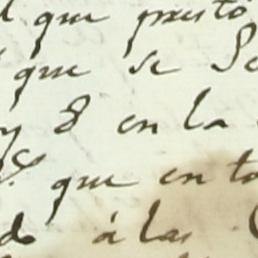 que presto
que se
y 8 en la
que en
do á las